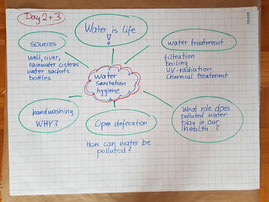 Day 2 + 3
Water is life
!
sources
well, river,
rainwater cisterns
water sachets
bottles
water treatment
filtration
boiling
UV-radiation
chemical treatment
Water
sanitation
hygiene
handwashing
WHY?
Open defecation
How can water be
polluted?
What role does
polluted water
play in our
health?